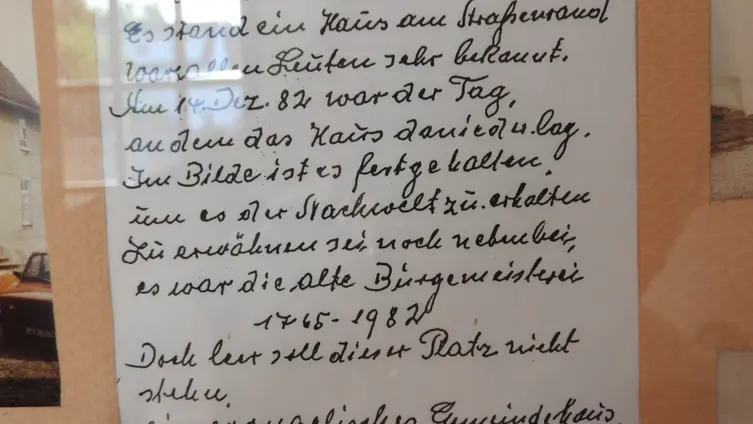 Es stand ein Haus am Straßenrand
war allen Leuten sehr bekannt.
Am 14. Dez. 82 war der Tag,
an dem das Haus danieder lag.
Im Bilde ist es festgehalten.
um es der Nachwelt zu erhalten
Zu erwähnen sei noch nebenbei,
es war die alte Bürgemeisterei
1765-1982
Doch leer soll dieser Platz nicht
stehn.
evangelisches Gemeindehaus